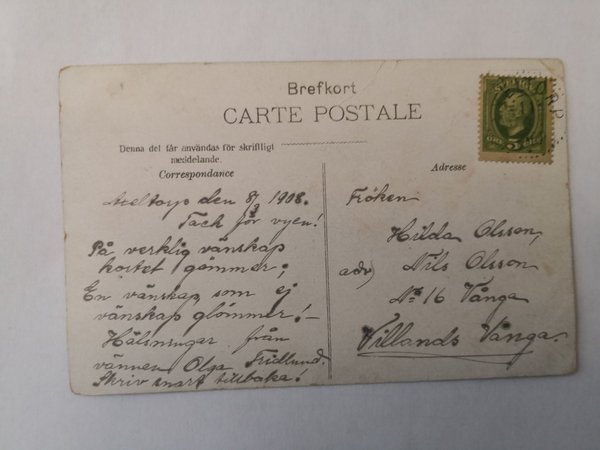 Brefkort
CARTE POSTALE
Denna del får användas för skriftligt
meddelande.
Correspondance
Adresse
SVERIGE
ÖRE 5 ÖRE
Axeltorp den 8/3 1908.
Tack för vyen!
På verklig vänskap
kortet gömmer;
En vänskap som ej
vänskap glömmer! –
Hälsningar från
vännen Olga Fridlund.
Skriv snart tillbaka!
Fröken
Hilda Olsson,
adr) Nils Olsson
No 16 Vånga
Villands Vånga.